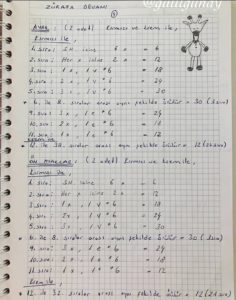 @gulligunay
ZÜRAFA DEVAMI
5
AYAK : (2 adet) Kırmızı ve krem ile,
Kırmızı ile,
1. sıra: SH içine 6 x = 6
2. sıra: Her x içine 2 x = 12
3. sıra: 1 x, 1 v * 6 = 18
4. sıra: 2 x, 1 v * 6 = 24
5. sıra: 3 x, 1 v * 6 = 30
* 6. ile 8. sıralar arası aynı şekilde örülür = 30 (3 sıra)
9. sıra: 3 x, 1 e * 6 = 24
10. sıra: 2 x, 1 e * 6 = 18
11. sıra: 1 x, 1 e * 6 = 12
ÖN AYAKLAR: (2 adet) Kırmızı ve krem ile,
Kırmızı ile,
1. sıra: SH içine 6 x = 6
2. sıra: Her x içine 2 x = 12
3. sıra: 1 x, 1 v * 6 = 18
4. sıra: 2 x, 1 v * 6 = 24
5. sıra: 3 x, 1 v * 6 = 30
* 6. ile 8. sıralar arası aynı şekilde örülür = 30 (3 sıra)
9. sıra: 3 x, 1 e * 6 = 24
10. sıra: 2 x, 1 e * 6 = 18
11. sıra: 1 x, 1 e * 6 = 12
Krem ile,
* 12. ile 32. sıralar arası aynı şekilde örülür = 12 (21 sıra)